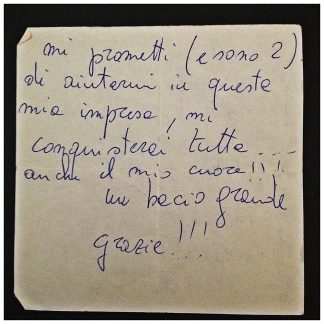 mi prometti (e sono 2)
di aiutarmi in questa
mia impresa, mi
conquisterai tutta...
anche il mio cuore!!!!
un bacio grande
grazie!!!